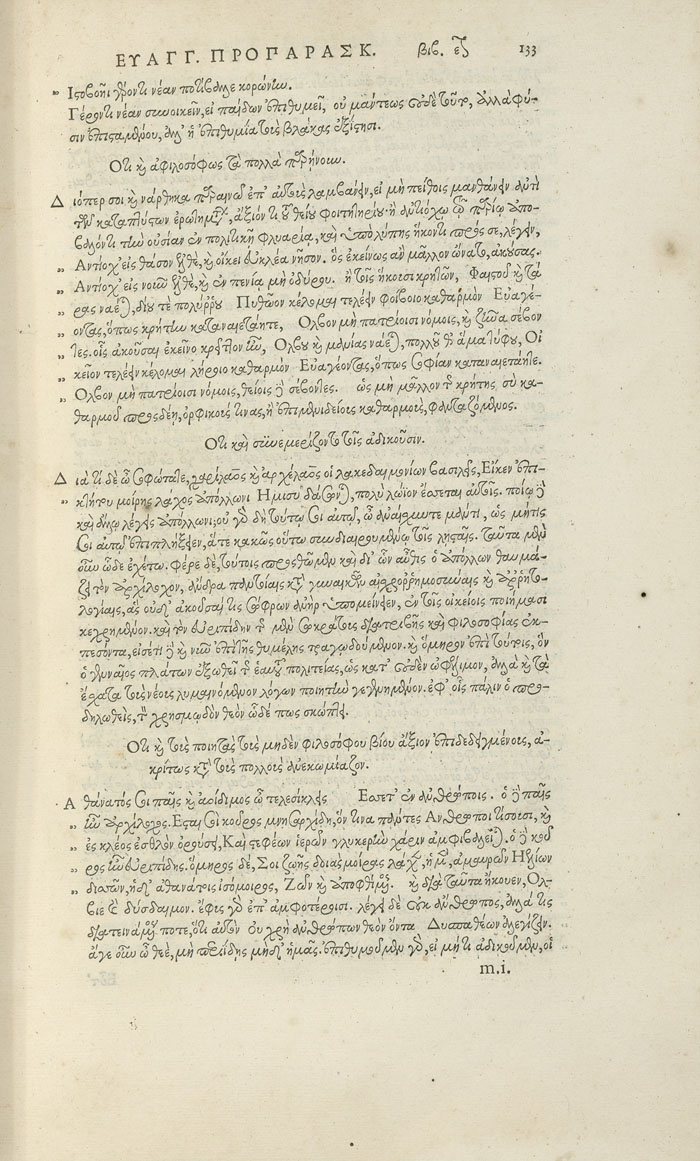 ΕΥΑΓΓ. ΠΡΟΠΑΡΑΣΚ. βιβ. ε 133
Ἱστοβοῆϊ γέροντι νέαν ποτίβαλλε κορώνην.
Γέροντι νέαν συνοικεῖν, εἰ παίδων ἐπιθυμεῖ, οὐ μάντεως οὐδὲ τοῦτο, ἀλλὰ φύ-
σιν ἐπισταμένου, ἀλλ' ἡ ἐπιθυμία τοὺς βλάκας ἐξίστησι.
Ὅτι καὶ ἀφιλοσόφως τὰ πολλὰ παρῄνουν.
Διόπερ σοι καὶ νάρθηκα παραινῶ ἐπ' αὐτοὺς λαμβάνειν, εἰ μὴ πείθοις μανθάνειν ἀντὶ
τῶν καταπτύστων ἐρωτημάτων, ἄξιόν τι τοῦ θείου φοιτητηρίου. ἢ ἀντιόχῳ τῷ παρίῳ ἀπο-
βαλόντι τὴν οὐσίαν ἐν πολιτικῇ φλυαρίᾳ, καὶ ὑπὸ λύπης ἥκοντι πρός σε, λέγειν,
Ἀντίοχ' εἰς θάσον ἐλθὲ, καὶ οἴκει εὐκλέα νῆσον. ὃς ἐκείνως ἂν μᾶλλον ὤνατο, ἀκούσας.
Ἀντίοχ' εἰς νοῦν ἐλθὲ, καὶ ἐν πενίᾳ μὴ ὀδύρου. ἢ τοῖς ἥκουσι κρητῶν, Φαιστοῦ καὶ τά
ρας ναέται, δίου τε πολύρρου Πυθῶον κέλομαι τελέειν φοίβοιο καθαρμὸν Εὐαγέ-
οντας, ὅπως κρήτην καταναιετάητε, Ὄλβον μὴ πατρίοισι νόμοις, καὶ ζῶσα σέβον
τες. οἷς ἀκοῦσαι ἐκεῖνο κρεῖττον ἦν, Ὄλβου καὶ μανίας ναέται, πολλοῦ θ' ἅμα τύφου, Οἰ
κεῖον τελέειν κέλομαι λήροιο καθαρμὸν Εὐαγέοντας, ὅπως σοφίαν καταναιετάητε.
Ὄλβον μὴ πατρίοισι νόμοις, θείοις δὲ σέβοντες. ὡς μὴ μᾶλλον τῆς κρήτης σὺ κα-
θαρμοῦ προσδέῃ, ὀρφικούς τινας, ἢ ἐπιμενιδείους καθαρμοὺς, φανταζόμενος.
Ὅτι καὶ συνεμερίζοντο τοῖς ἀδικοῦσιν.
Διὰ τί δὲ ὦ σοφώτατε, χαρίλαος καὶ ἀρχέλαος οἱ λακεδαιμονίων βασιλεῖς, Εἴκεν ἐπι-
κτήτου μοίρης λάχος ἀπόλλωνι Ἥμισυ δάσωνται, πολὺ λώϊον ἔσσεται αὐτοῖς. ποίῳ δὲ
καὶ ἄλλῳ λέγεις ἀπόλλωνι; οὐ γὰρ δὴ τούτῳ σοι αὐτῷ, ὦ ἀναίσχυντε μάντι, ὡς μή τις
σοι αὐτῷ ἐπιπλήξειεν, ἅτε κακῶς οὕτω συνδιαιρουμένῳ τοῖς λῃσταῖς. ταῦτα μὲν
οὖν ὧδε ἐχέτω. φέρε δὲ, τούτοις προσθῶμεν καὶ δι' ὧν αὖθις ὁ ἀπόλλων θαυμά-
ζει τὸν ἀρχίλοχον, ἄνδρα παντοίαις κατὰ γυναικῶν αἰσχρορρημοσύναις καὶ ἀρρητο-
λογίαις, ἃς οὐδ' ἀκοῦσαί τις σώφρων ἀνὴρ ὑπομείνειεν, ἐν τοῖς οἰκείοις ποιήμασι
κεχρημένον. καὶ τὸν εὐριπίδην τῆς μὲν σωκράτους διατριβῆς καὶ φιλοσοφίας ἐκ-
πεσόντα, εἰσέτι δὲ καὶ νῦν ἐπὶ τῆς θυμέλης τραγῳδούμενον. καὶ ὅμηρον ἐπὶ τούτοις, ὃν
ὁ γενναῖος πλάτων ἐξωθεῖ τῆς ἑαυτοῦ πολιτείας, ὡς κατ' οὐδὲν ὠφέλιμον, ἀλλὰ καὶ τὰ
ἔσχατα τοὺς νέους λυμαινόμενον λόγων ποιητὴν γεγενημένον. ἐφ' οἷς πάλιν ὁ προ-
δηλωθεὶς, τὸν χρησμῳδὸν θεὸν ὧδέ πως σκώπτει.
Ὅτι καὶ τοὺς ποιητὰς τοὺς μηδὲν φιλοσόφου βίου ἄξιον ἐπιδεδειγμένους, ἀ-
κρίτως κατὰ τοὺς πολλοὺς ἀνεκωμίαζον.
Ἀθάνατός σοι παῖς καὶ ἀοίδιμος ὦ τελεσίκλεις Ἔσσετ' ἐν ἀνθρώποις. ὁ δὲ παῖς
ἦν ἀρχίλοχος. Ἔσται σοι κοῦρος μνησαρχίδη, ὅν τινα πάντες Ἄνθρωποι τίσουσι, καὶ
ἐς κλέος ἐσθλὸν ὀρούσει, Καὶ στεφέων ἱερῶν γλυκερὴν χάριν ἀμφιβαλεῖται. ὁ δὲ κοῦ
ρος ἦν εὐριπίδης. ὅμηρος δὲ, Σοὶ ζωῆς δοιὰς μοίρας λάχε, ἣ μὲν, ἀμαυρῶν Ἡελίων
δισσῶν, ἣ δ' ἀθανάτοις ἰσόμοιρος, Ζῶντι καὶ ἀποφθιμένῳ. καὶ διὰ ταῦτα ἤκουεν, Ὄλ-
βιε καὶ δύσδαιμον. ἔφυς γὰρ ἐπ' ἀμφοτέροισι. λέγει δὲ οὐκ ἄνθρωπος, ἀλλά τις
διατεινάμενός ποτε, ὅτι αὐτὸν Οὐ χρὴ ἀνθρώπων θεὸν ὄντα Δυσπαθέων ἀλεγίζειν.
ἄγε οὖν ὦ θεὲ, μὴ παρίδῃς μηδ' ἡμᾶς. ἐπιθυμοῦμεν γὰρ, εἰ μή τι ἀδικοῦμεν, οἱ
m.i.